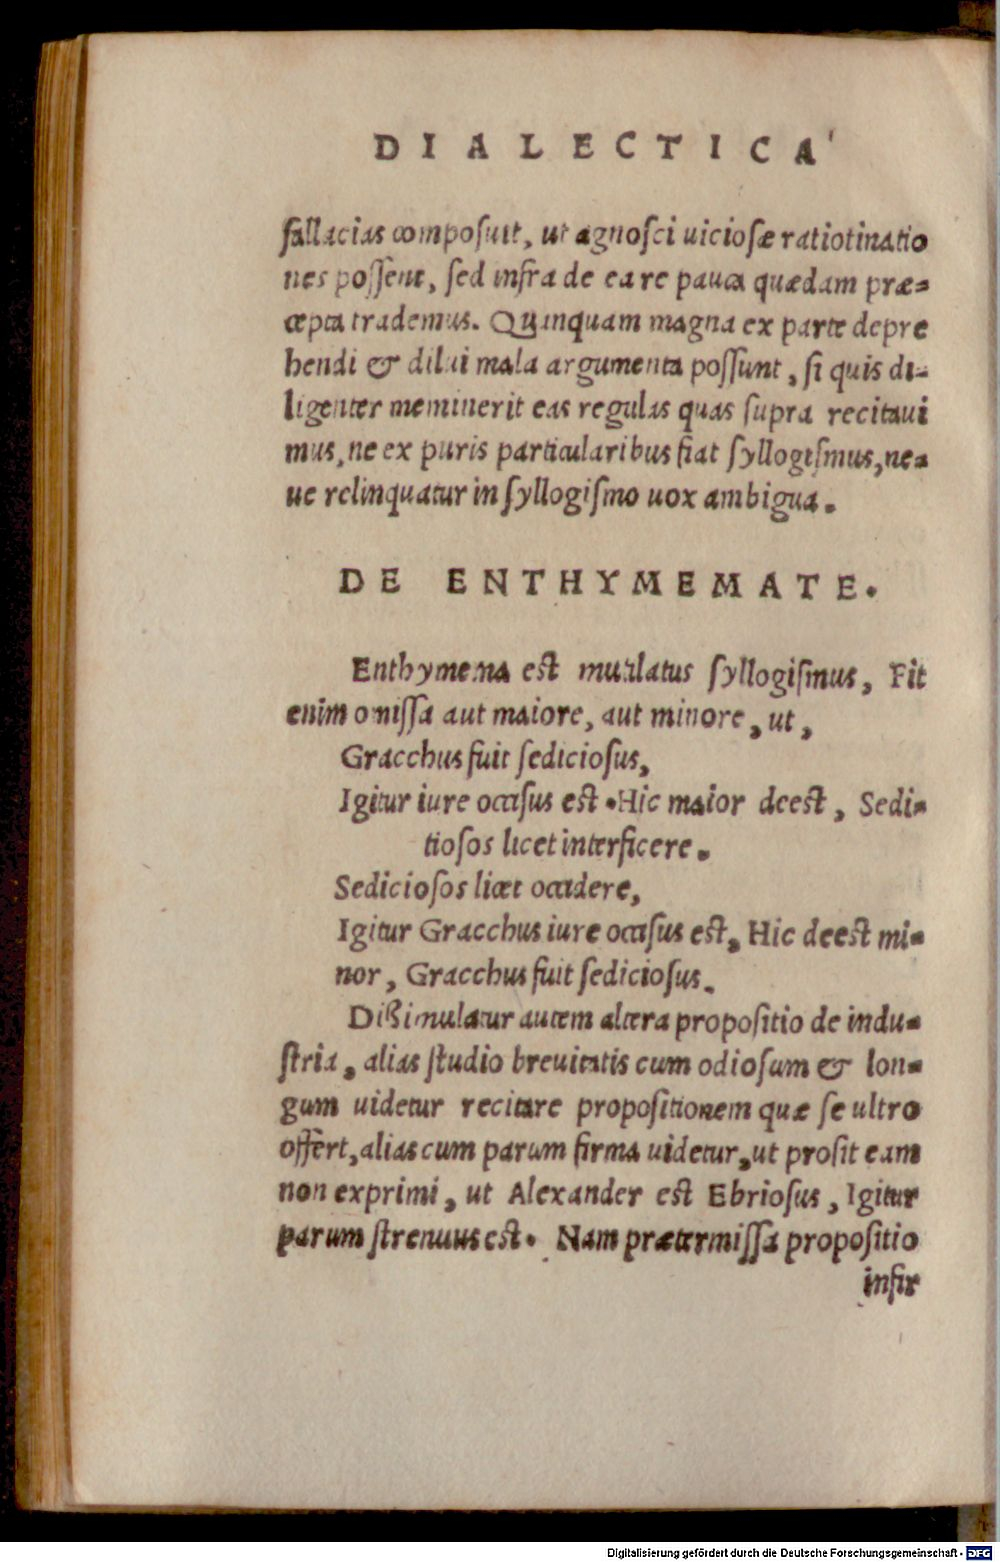 DIALECTICA'
fallacias composuit, ut agnosci uiciosæ ratiotinatio
nes possent, sed infra de ea re pauca quædam præ=
cepta trademus. Quanquam magna ex parte depre
hendi & dilui mala argumenta possunt, si quis di=
ligenter meminerit eas regulas quas supra recitaui
mus, ne ex puris particularibus fiat syllogismus, ne=
ue relinquatur in syllogismo uox ambigua.
DE ENTHYMEMATE.
Enthymema est mutilatus syllogismus, Fit
enim omissa aut maiore, aut minore, ut,
Gracchus fuit sediciosus,
Igitur iure occisus est. Hic maior deest, Sedi=
tiosos licet interficere.
Sediciosos licet occidere,
Igitur Gracchus iure occisus est, Hic deest mi=
nor, Gracchus fuit sediciosus.
Dißimulatur autem altera propositio de indu=
stria, alias studio breuitatis cum odiosum & lon=
gum uidetur recitare propositionem quæ se ultro
offert, alias cum parum firma uidetur, ut prosit eam
non exprimi, ut Alexander est Ebriosus, Igitur
parum strenuus est. Nam prætermissa propositio
infir
Digitalisierung gefördert durch die Deutsche Forschungsgemeinschaft - DFG